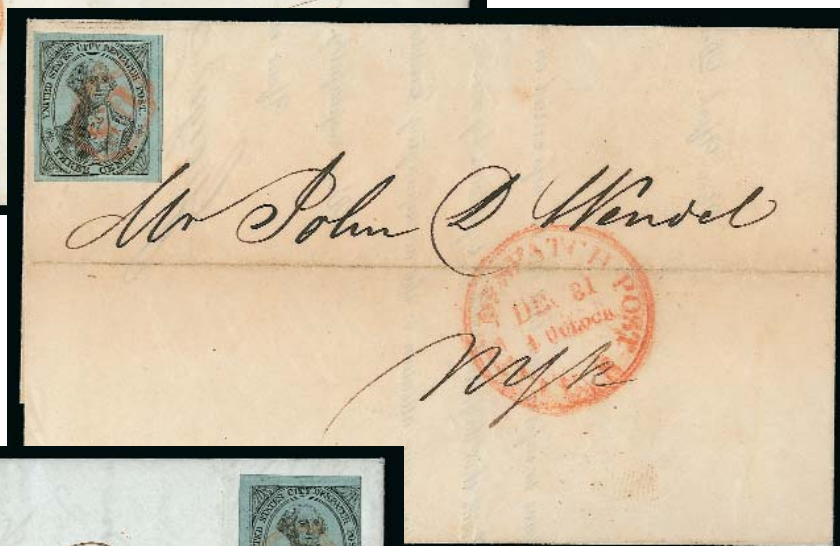 UNITED STATES CITY DESPATCH POST.
THREE CENTS.
Mr John D Wendel
DESPATCH POST
DEC 31
4 O'CLOCK
NYk
UNITED STATES CITY DESPATCH POST